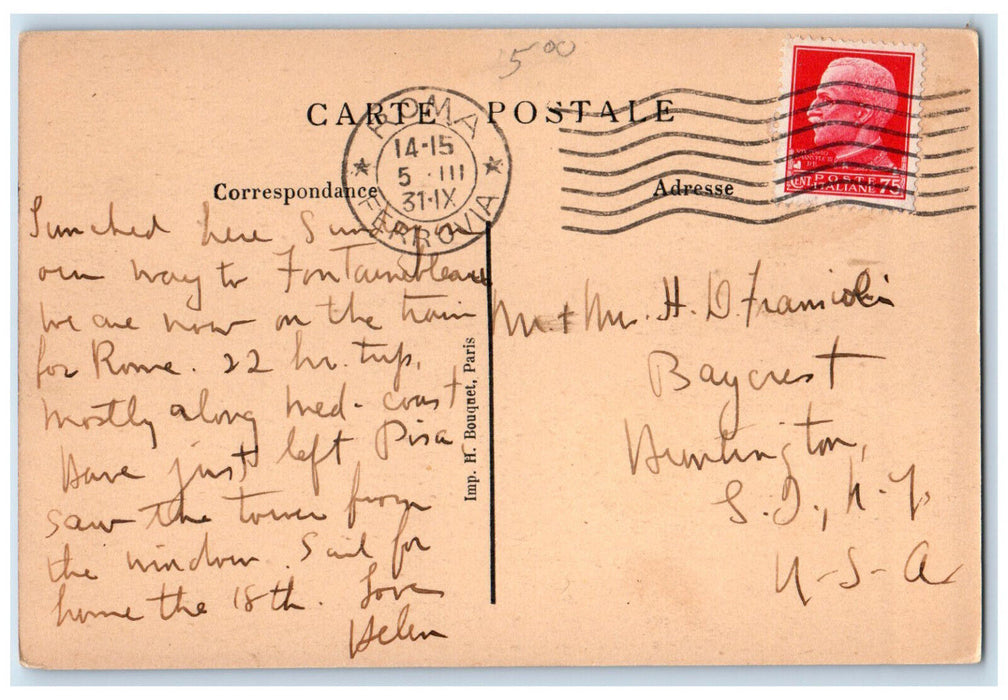 5.00
CARTE POSTALE
ROMA
14-15
5 · III
31·IX
FERROVIA
POSTE
ITALIANE 75
CENT.
Correspondance
Adresse
Lunched here Sun. on
our way to Fontainbleau
We are now on the train
for Rome. 22 hr. trip,
mostly along Med. coast
Have just left Pisa
saw the tower from
the window. Sail for
home the 18th. Love
Helen
Imp. H. Bouquet, Paris
Mr + Mrs. H. D.
Baycrest
Huntington,
L. I., N. Y.
U-S-A